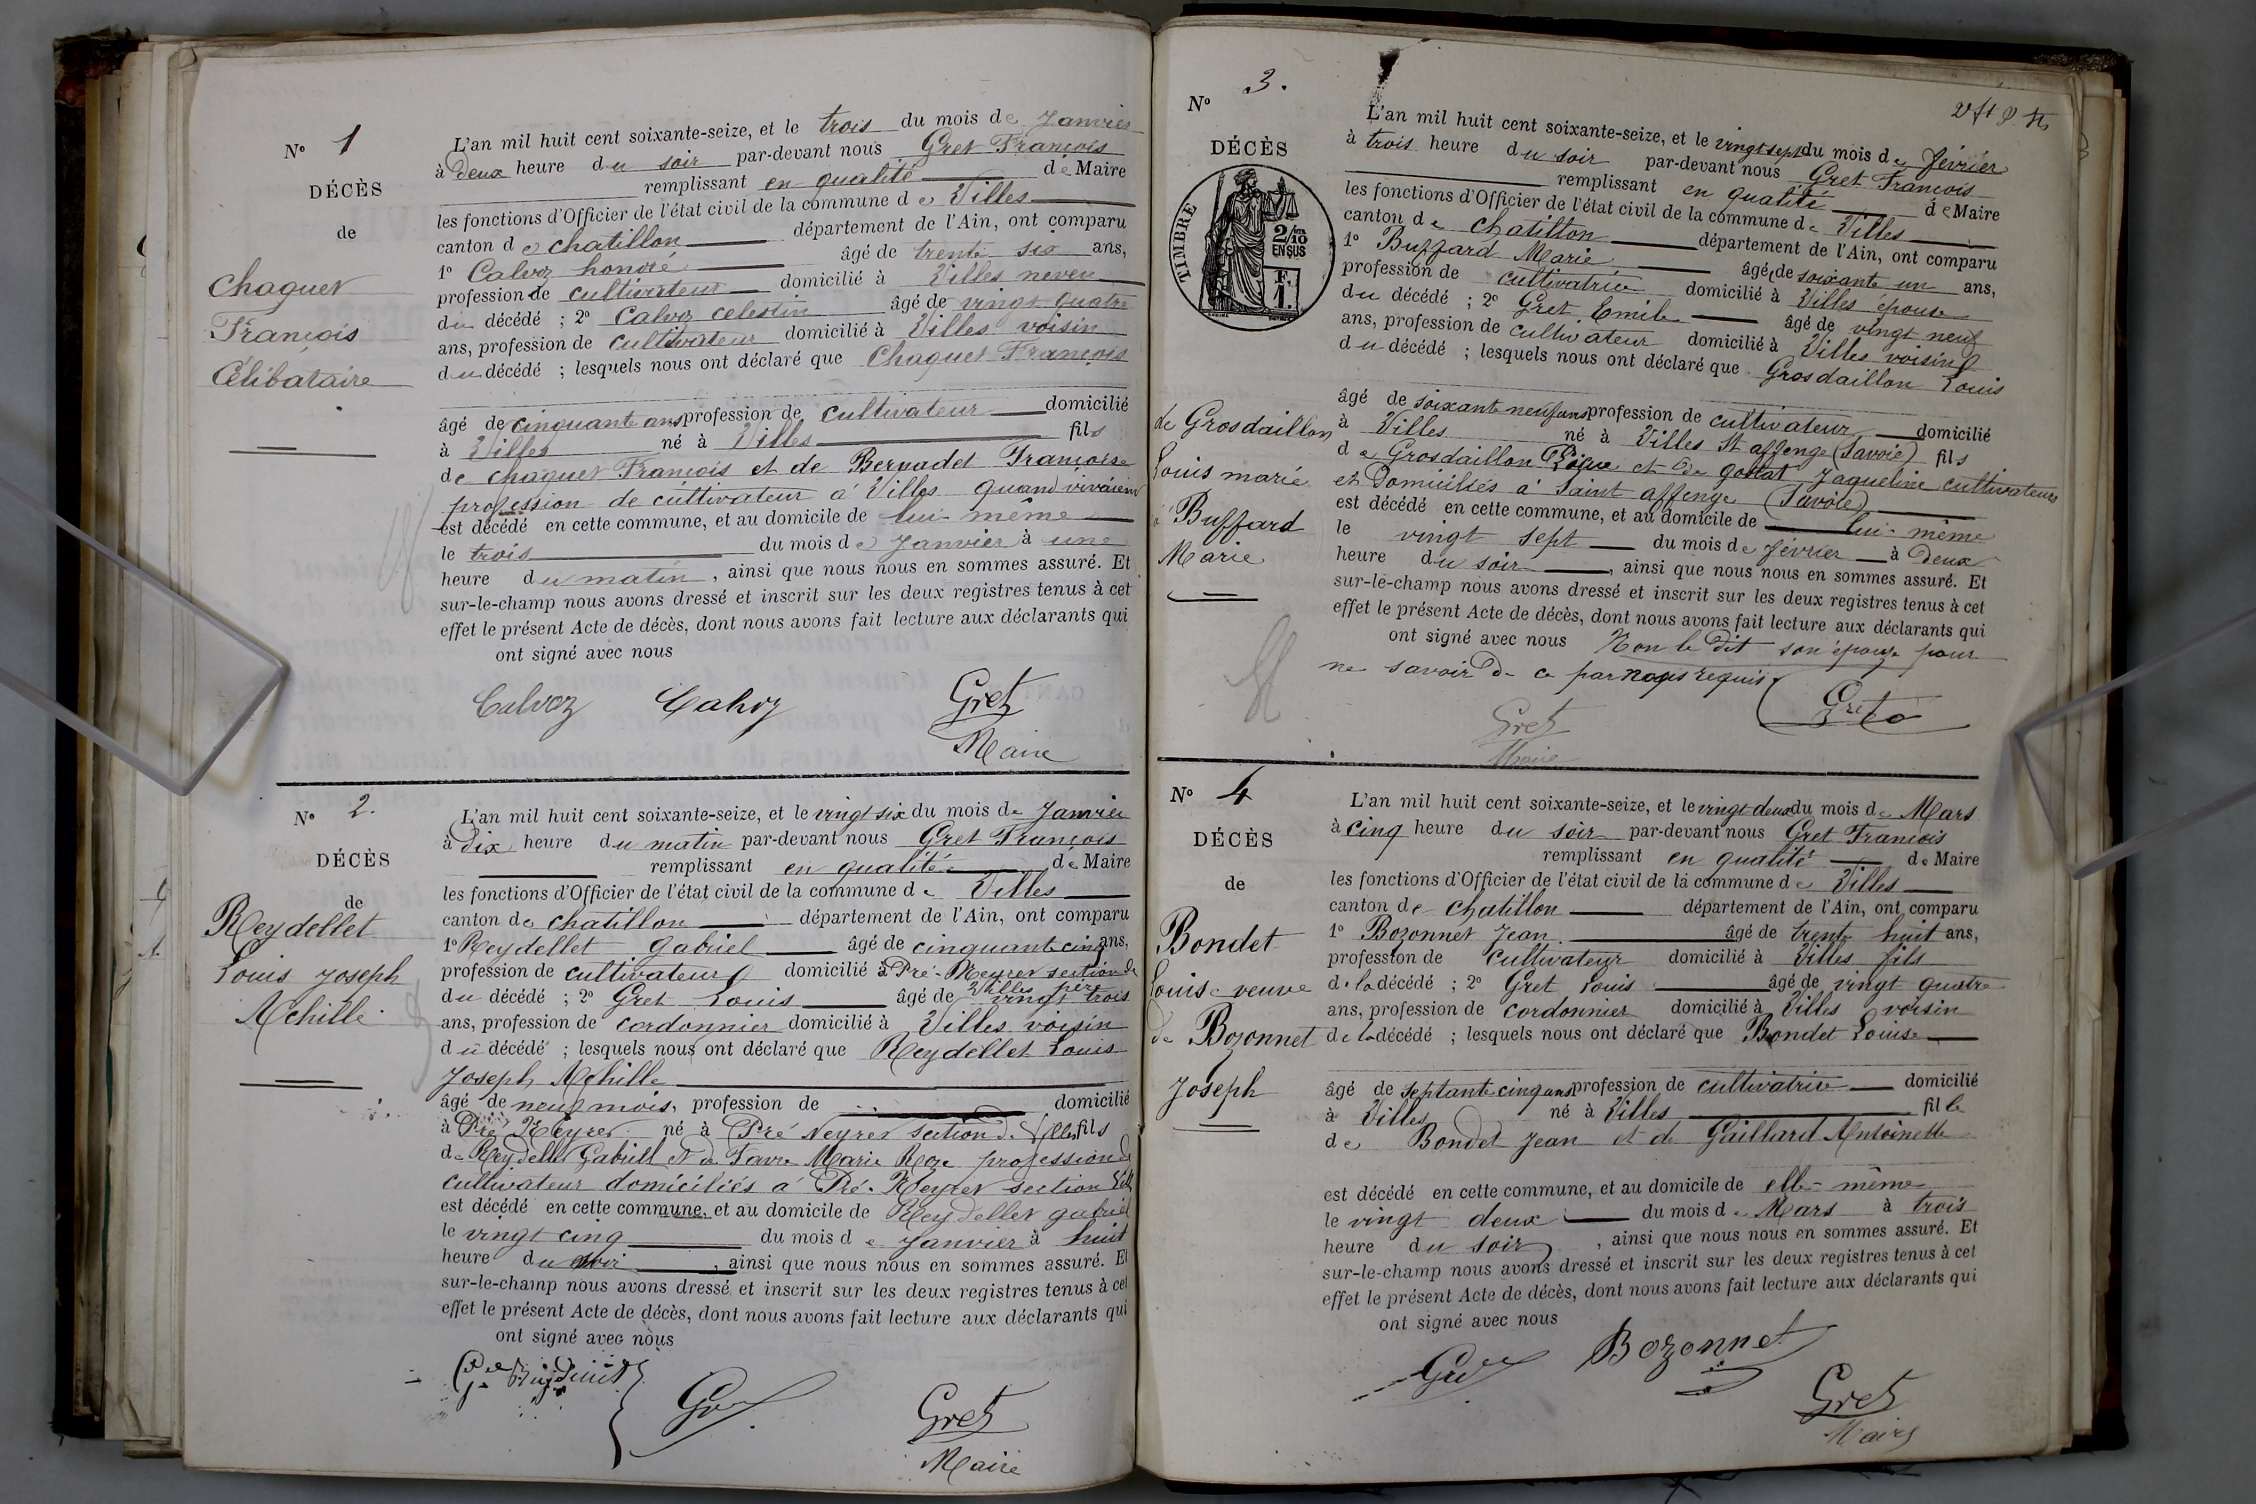 N° 1
DÉCÈS
de
Chaquet
François
Célibataire
L'an mil huit cent soixante-seize, et le trois du mois de Janvier
à Deux heure du soir par-devant nous Gret François
remplissant en qualité de Maire
les fonctions d'Officier de l'état civil de la commune de Villes
canton de chatillon département de l'Ain, ont comparu
1° Calvoz honoré âgé de trente six ans,
profession de cultivateur domicilié à Villes neveu
du décédé ; 2° Calvoz celestin âgé de vingt quatre
ans, profession de cultivateur domicilié à Villes voisin
du décédé ; lesquels nous ont déclaré que Chaquet François
âgé de cinquante ans profession de cultivateur domicilié
à Villes né à Villes fils
de chaquet François et de Bernadet Françoise
profession de cultivateur á Villes quand vivaient
est décédé en cette commune, et au domicile de lui même
le trois du mois de Janvier à une
heure du matin, ainsi que nous nous en sommes assuré. Et
sur-le-champ nous avons dressé et inscrit sur les deux registres tenus à cet
effet le présent Acte de décès, dont nous avons fait lecture aux déclarants qui
ont signé avec nous
Calvoz Calvoz Gret
Maire
N° 2.
DÉCÈS
de
Reydellet
Louis Joseph
Achille
L'an mil huit cent soixante-seize, et le vingt six du mois de Janvier
à Dix heure du matin par-devant nous Gret François
remplissant en qualité de Maire
les fonctions d'Officier de l'état civil de la commune de Villes
canton de chatillon département de l'Ain, ont comparu
1° Reydellet gabriel âgé de cinquante cinq ans,
profession de cultivateur domicilié à Pré-Neyret section de
Villes père
du décédé ; 2° Gret Louis âgé de vingt trois
ans, profession de cordonnier domicilié à Villes voisin
du décédé ; lesquels nous ont déclaré que Reydellet Louis
Joseph Achille
âgé de neuf mois, profession de domicilié
à Pré Neyret né à Pré Neyret section de Villes fils
de Reydellet Gabriel et de Favre Marie Roze profession de
cultivateur domiciliés á Pré-Neyret section Vill
est décédé en cette commune, et au domicile de Reydellet gabriel
le vingt cinq du mois de Janvier à huit
heure du soir, ainsi que nous nous en sommes assuré. Et
sur-le-champ nous avons dressé et inscrit sur les deux registres tenus à cet
effet le présent Acte de décès, dont nous avons fait lecture aux déclarants qui
ont signé avec nous
Gret
Maire
N° 3.
DÉCÈS
TIMBRE
2/10
EN SUS
F.
1.
de Grosdaillon
Louis marié
à Buffard
Marie
L'an mil huit cent soixante-seize, et le vingt sept du mois de février
à trois heure du soir par-devant nous Gret François
remplissant en qualité de Maire
les fonctions d'Officier de l'état civil de la commune de Villes
canton de chatillon département de l'Ain, ont comparu
1° Buffard Marie âgé de soixante un ans,
profession de cultivatrice domicilié à Villes épouse
du décédé ; 2° Gret Emile âgé de vingt neuf
ans, profession de cultivateur domicilié à Villes voisin
du décédé ; lesquels nous ont déclaré que Grosdaillon Louis
âgé de soixante neuf ans profession de cultivateur domicilié
à Villes né à Villes St affenge (Savoie) fils
de Grosdaillon et de gottat Jaqueline cultivateurs
et Domiciliés á Saint affenge (Savoie)
est décédé en cette commune, et au domicile de lui-même
le vingt sept du mois de février à Deux
heure du soir, ainsi que nous nous en sommes assuré. Et
sur-le-champ nous avons dressé et inscrit sur les deux registres tenus à cet
effet le présent Acte de décès, dont nous avons fait lecture aux déclarants qui
ont signé avec nous Non le dit son épouse pour
ne savoir De ce par nous requis
Gret Gret
Maire
N° 4
DÉCÈS
de
Bondet
Louise veuve
de Bozonnet
Joseph
L'an mil huit cent soixante-seize, et le vingt deux du mois de Mars
à cinq heure du soir par-devant nous Gret François
remplissant en qualité de Maire
les fonctions d'Officier de l'état civil de la commune de Villes
canton de chatillon département de l'Ain, ont comparu
1° Bozonnet Jean âgé de trente huit ans,
profession de cultivateur domicilié à Villes fils
de la décédé ; 2° Gret Louis âgé de vingt quatre
ans, profession de cordonnier domicilié à Villes voisin
de la décédé ; lesquels nous ont déclaré que Bondet Louise
âgé de septante cinq ans profession de cultivatrice domicilié
à Villes né à Villes fille
de Bondet Jean et de Gaillard Antoinette
est décédé en cette commune, et au domicile de elle-même
le vingt deux du mois de Mars à trois
heure du soir, ainsi que nous nous en sommes assuré. Et
sur-le-champ nous avons dressé et inscrit sur les deux registres tenus à cet
effet le présent Acte de décès, dont nous avons fait lecture aux déclarants qui
ont signé avec nous
Bozonnet
Gret
Maire